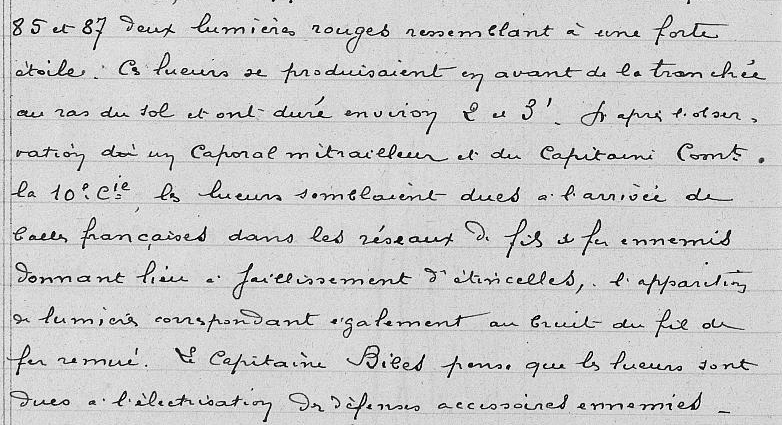 85 et 87 deux lumières rouges ressemblant à une forte
étoile. Ces lueurs se produisaient en avant de la tranchée
au ras du sol et ont duré environ 2 à 3'. D'après l'obser-
vation d'un Caporal mitrailleur et du Capitaine Comt.
la 10e. Cie, les lueurs semblaient dues à l'arrivée de
balles françaises dans les réseaux de fils de fer ennemis
donnant lieu à jaillissement d'étincelles, l'apparition
de lumières correspondant également au bruit du fil de
fer remué. Le Capitaine pense que les lueurs sont
dues à l'électrisation des défenses accessoires ennemies -